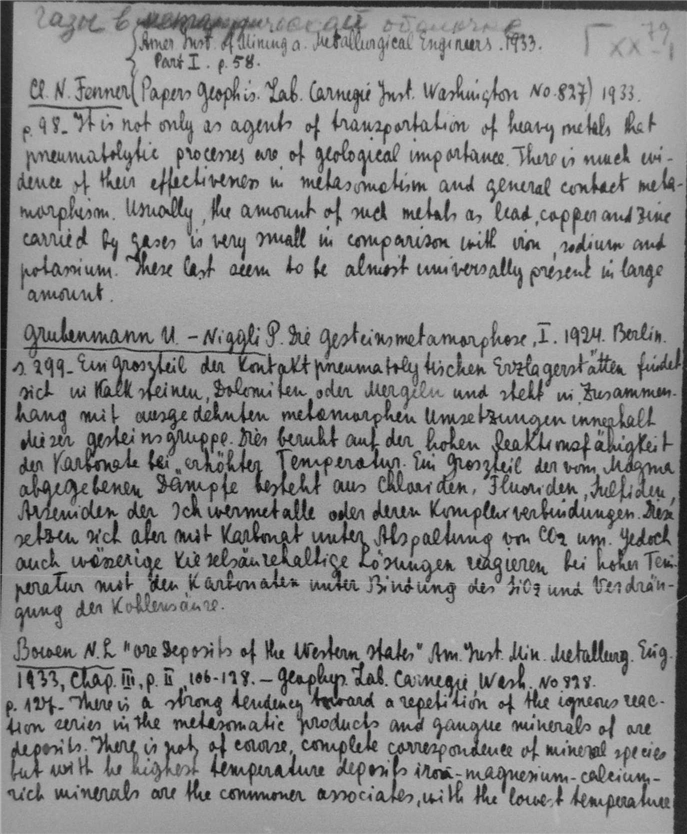 газы в метаморфической оболочке
Amer. Inst. of Mining a. Metallurgical Engineers. 1933.
Part I. p. 58.
Г XX 79-1
Cl. N. Fenner (Papers Geophis. Lab. Carnegie Inst. Washington No. 827) 1933.
p. 98 - It is not only as agents of transportation of heavy metals that
pneumatolytic processes are of geological importance. There is much evi-
dence of their effectiveness in metasomatism and general contact meta-
morphism. Usually, the amount of such metals as lead, copper and zinc
carried by gases is very small in comparison with iron, sodium and
potassium. These last seem to be almost universally present in large
amount.
Grubenmann U. - Niggli P. Die Gesteinsmetamorphose, I. 1924. Berlin.
s. 299 - Ein groszteil der Kontaktpneumatolytischen Erzlagerstätten findet
sich in Kalksteinen, Dolomiten, oder Mergeln und steht in Zusammen-
hang mit ausgedehnten metamorphen Umsetzungen innerhalb
dieser gesteinsgruppe. Dies beruht auf der hohen Reaktionsfähigkeit
der Karbonate bei erhöhter Temperatur. Ein Groszteil der vom Magma
abgegebenen Dämpfe besteht aus Chloriden, Fluoriden, Sulfiden,
Arseniden der Schwermetalle oder deren Komplexverbindungen. Diese
setzen sich aber mit Karbonat unter Abspaltung von CO2 um. Jedoch
auch wässerige Kieselsäurehaltige Lösungen reagieren bei hoher Tem-
peratur mit den Karbonaten unter Bindung des SiO2 und Verdrän-
gung der Kohlensäure.
Bowen N. L "ore Deposits of the Western States" Am. Inst. Min. Metallurg. Eng.
1933, Chap. III, p. II, 106-128. - Geophys. Lab. Carnegie Wash. No 828.
p. 127 - There is a strong tendency toward a repetition of the igneous reac-
tion series in the metasomatic products and gangue minerals of ore
deposits. There is not, of course, complete correspondence of mineral species
but with he highest temperature deposits iron-magnesium-calcium-
rich minerals are the commoner associates, with the lowest temperature